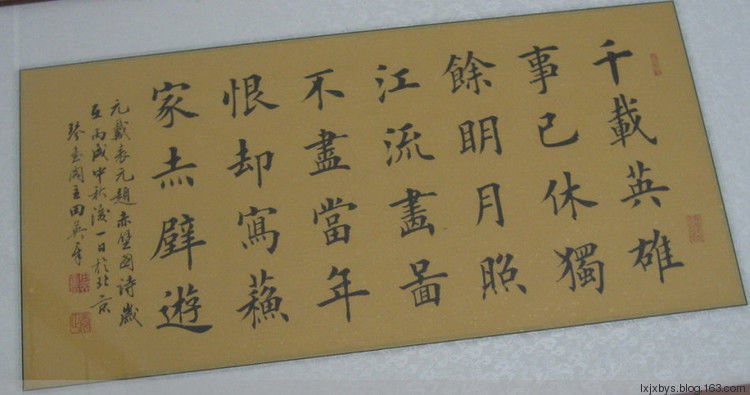 千載英雄
事已休獨
餘明月照
江流畫啚
不盡當年
恨却寫蘓
家赤壁遊
元戴表元題赤壁圖詩歲
在丙戌中秋後一日於北京
閣主田英章
lxjxbys.blog.163.com